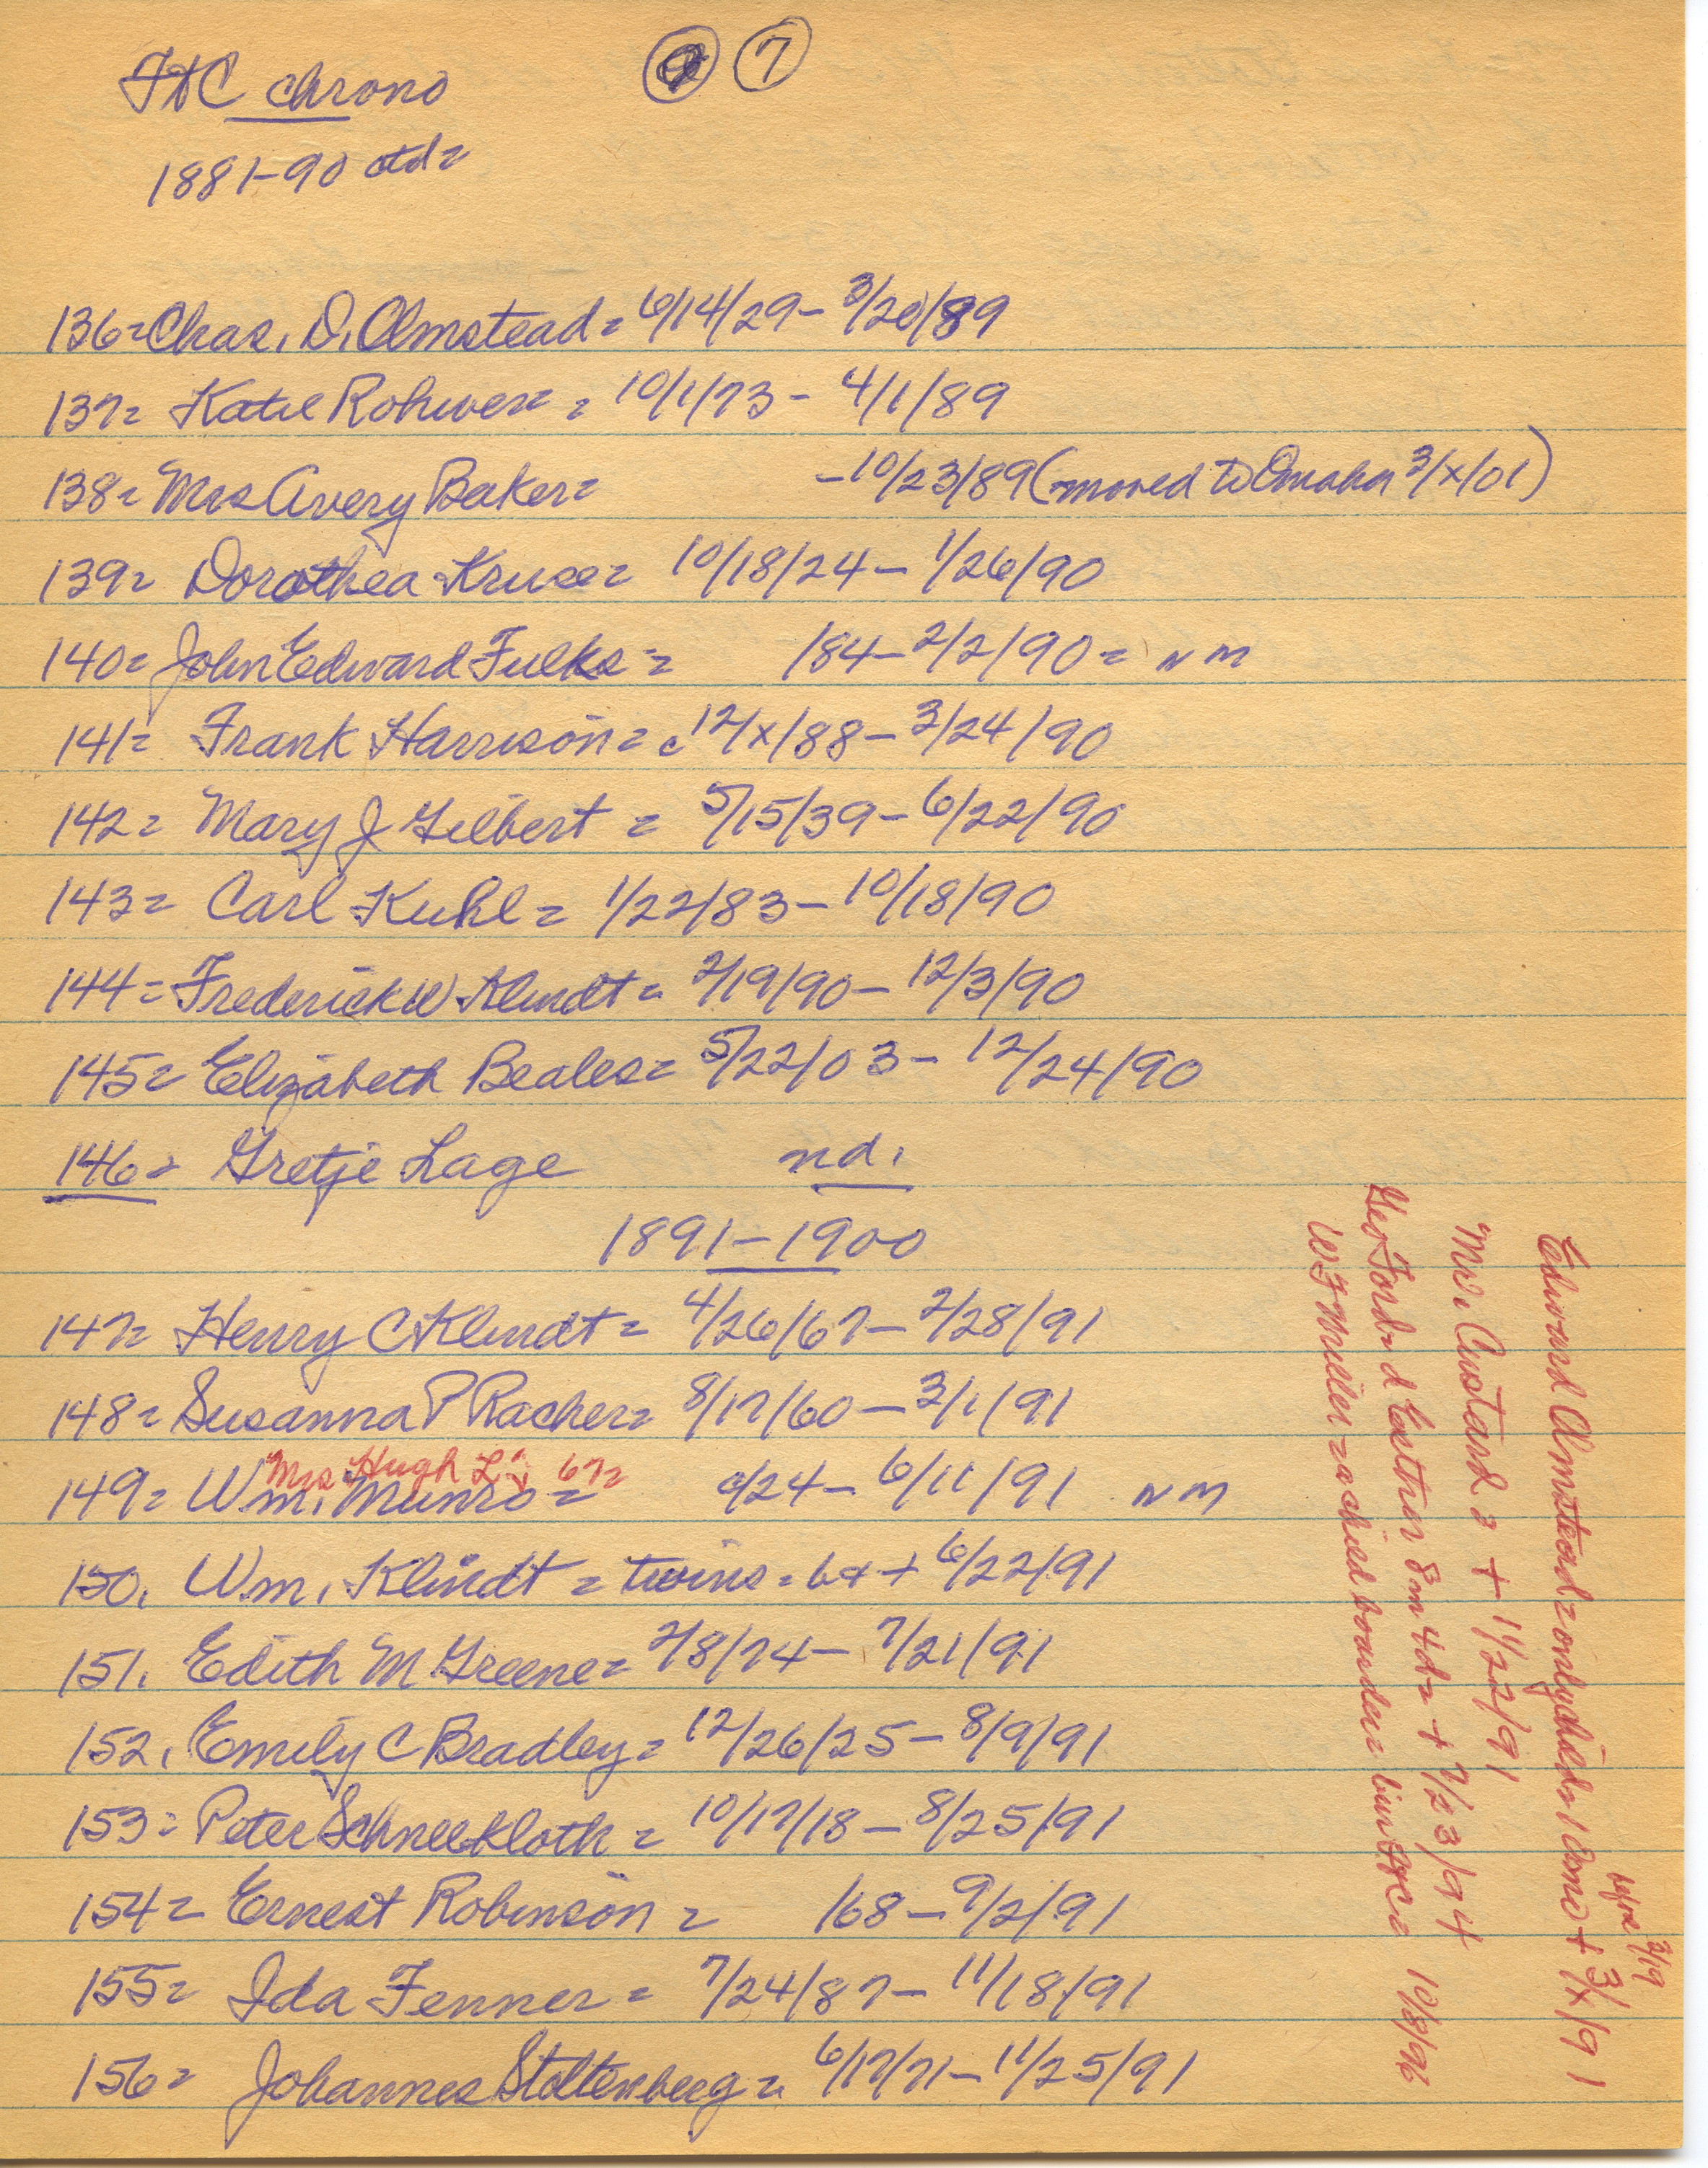 FDC chrono
7
1881-90 ctd=
136= Chas. D. Olmstead = 6/14/29 - 3/20/89
137= Katie Rohwer = 10/1/73 - 4/1/89
138= Mrs Avery Baker = - 10/23/89 (moved to Omaha 3/x/01)
139= Dorothea Kruse = 10/18/24 - 1/26/90
140= John Edward Fulks = /84 - 2/2/90 = NM
141= Frank Harrison = c12/x/88 - 3/24/90
142= Mary J Gilbert = 5/15/39 - 6/22/90
143= Carl Kuhl = 1/22/83 - 10/18/90
144= Frederick W Klindt = 2/19/90 - 12/3/90
145= Elizabeth Beales = 5/22/03 - 12/24/90
146= Gretje Lage nd.
1891-1900
147= Henry C Klindt = 4/26/67 - 2/28/91
148= Susanna P Racher = 8/17/60 - 3/1/91
Mrs Hugh L. 67=
149= Wm. Munro = c/24 - 6/11/91 NM
150. Wm. Klindt = twins = b & + 6/22/91
151. Edith M Greene = 2/8/74 - 7/21/91
152. Emily C Bradley = 12/26/25 - 8/9/91
153= Peter Schneekloth = 10/17/18 - 8/25/91
154= Ernest Robinson = /68 - 9/2/91
155= Ida Fenner = 7/24/87 - 11/18/91
156= Johannes Stoltenberg = 6/17/71 - 11/25/91
Edward Olmstead = only child = 10mo + 3/x/91
before 3/19
Mr. Custard = + 1/22/91
Geo Ford = d Esther 8m 4d = + 7/23/94
WF Miller = a child boarder = bur 10/8/96